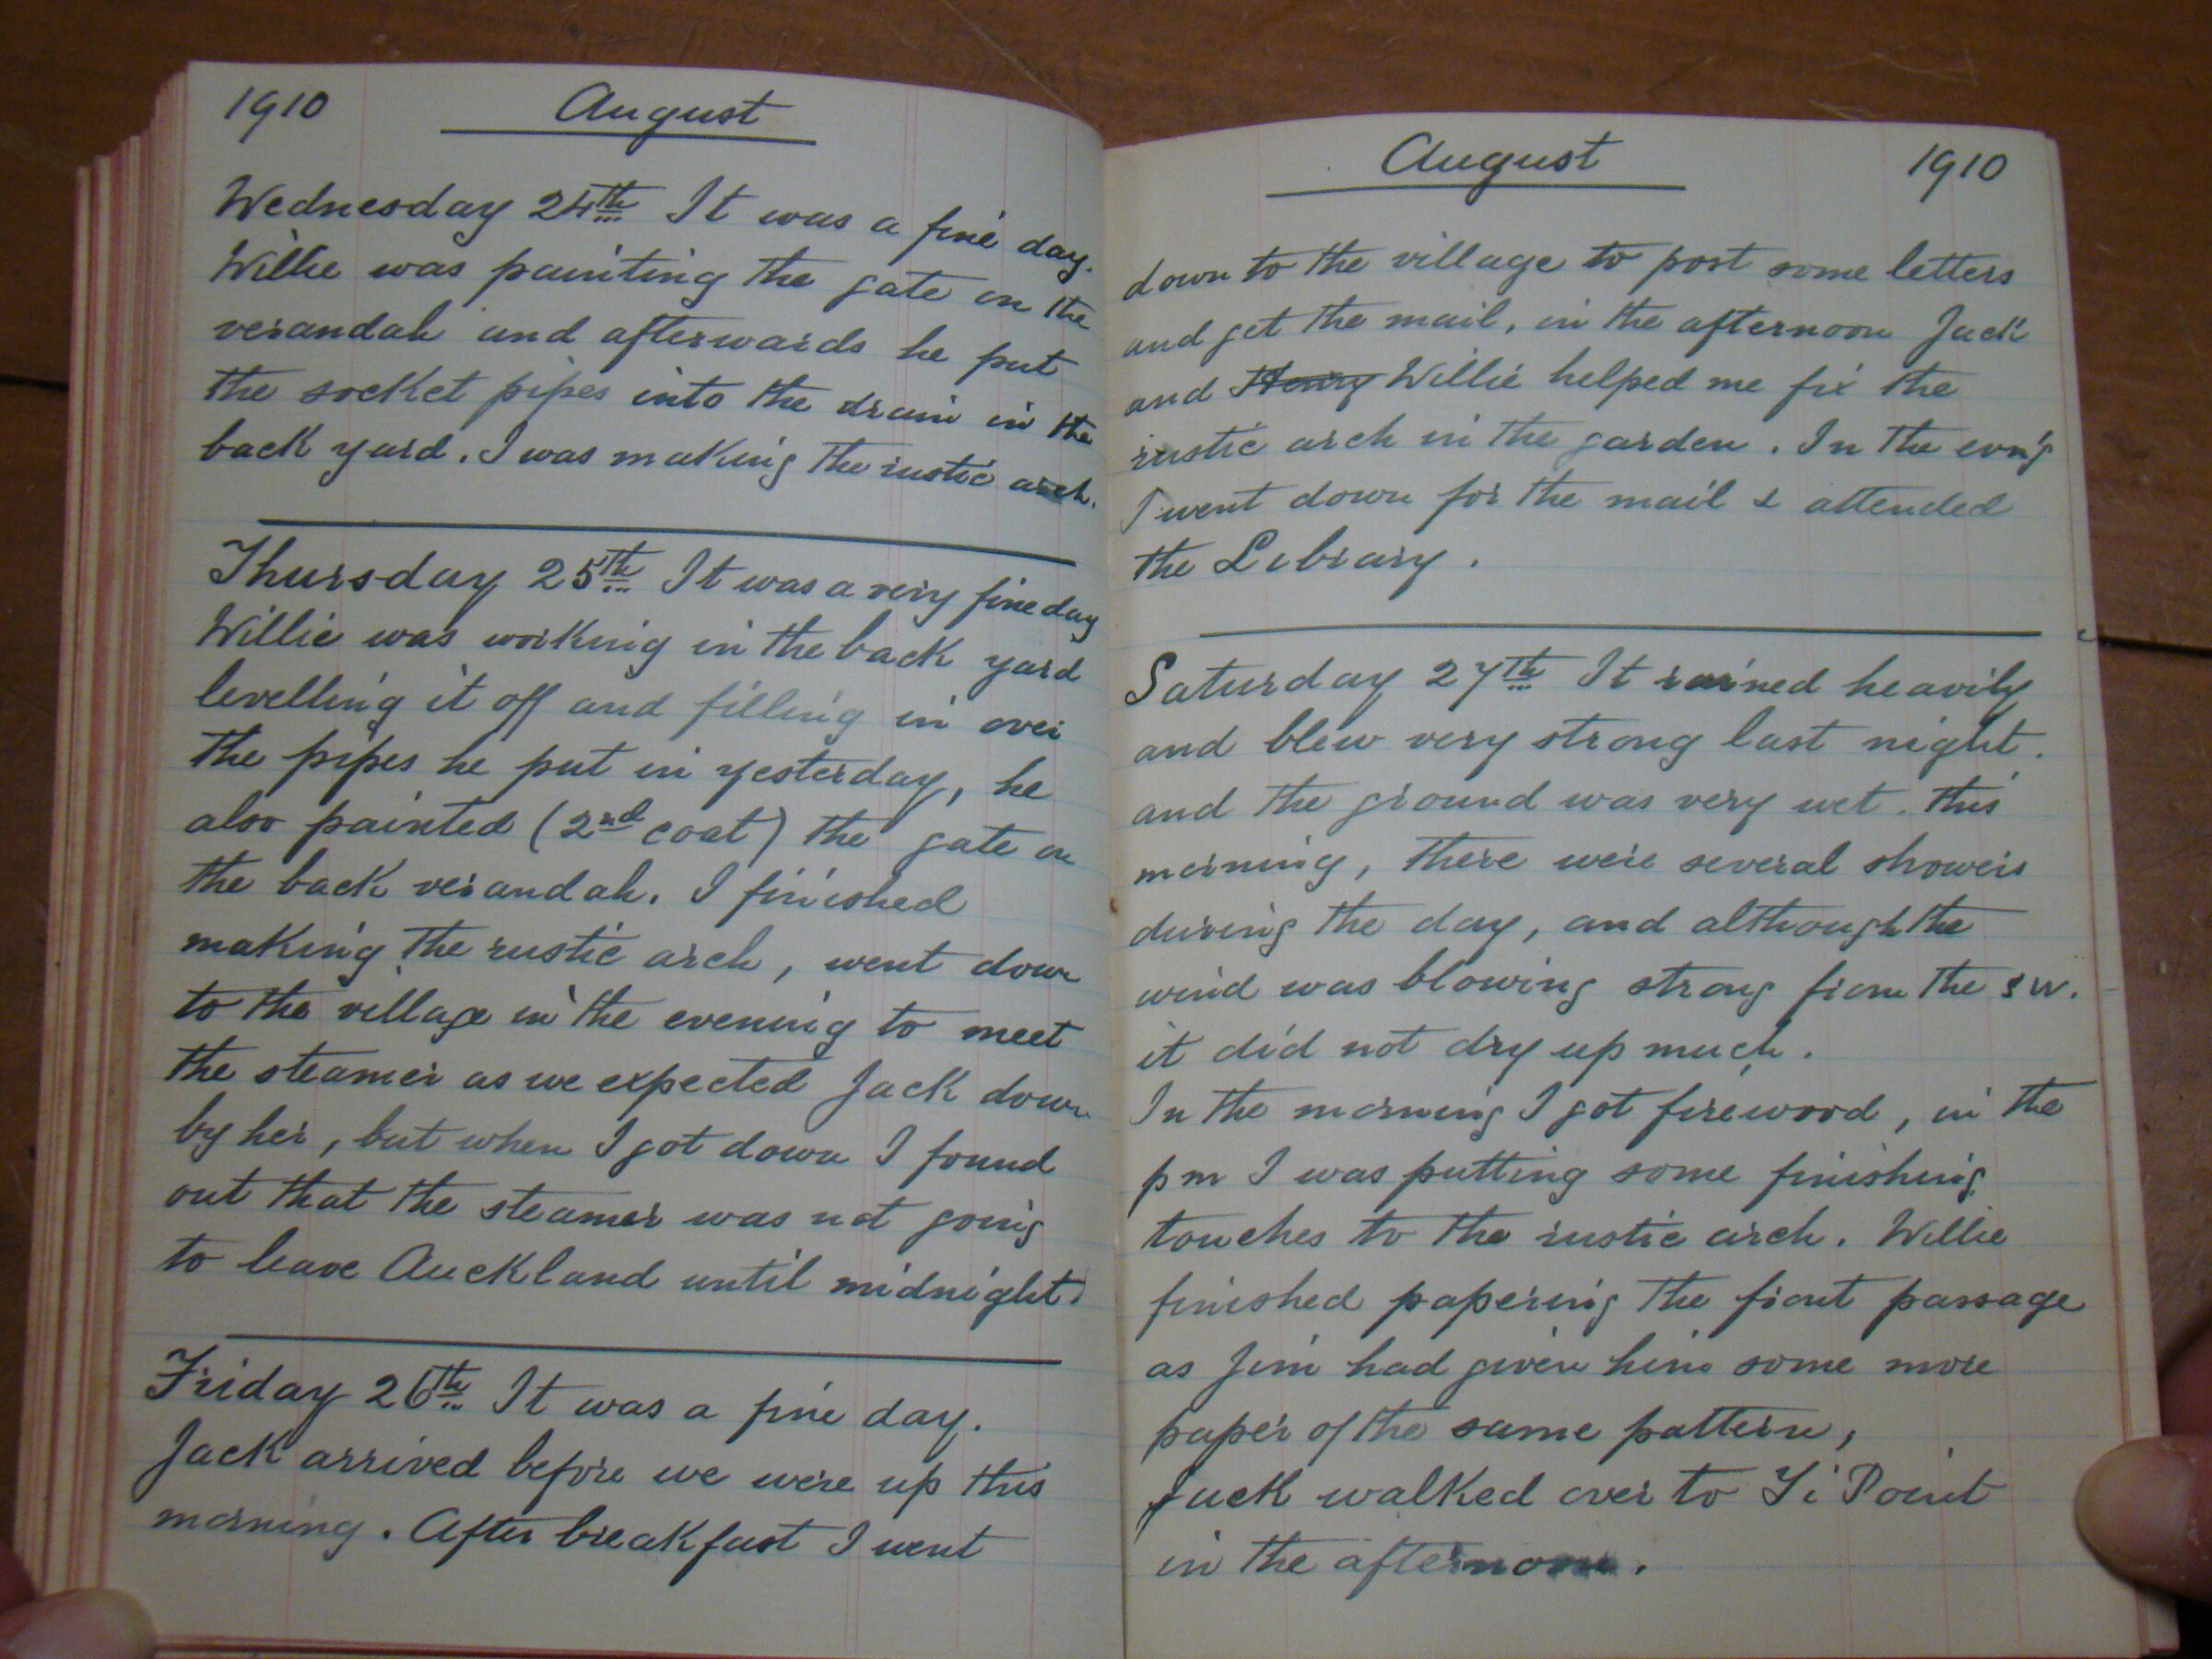 1910 August
Wednesday 24th It was a fine day.
Willie was painting the gate on the
verandah and afterwards he put
the socket pipes into the drain in the
back yard. I was making the rustic arch.
Thursday 25th It was a very fine day
Willie was working in the back yard
levelling it off and filling in over
the pipes he put in yesterday, he
also painted (2nd coat) the gate on
the back verandah. I finished
making the rustic arch, went down
to the village in the evening to meet
the steamer as we expected Jack down
by her, but when I got down I found
out that the steamer was not going
to leave Auckland until midnight.
Friday 26th It was a fine day.
Jack arrived before we were up this
morning. After breakfast I went
August 1910
down to the village to post some letters
and get the mail, in the afternoon Jack
and Henry Willie helped me fix the
rustic arch in the garden. In the evn'g
I went down for the mail & attended
the Library.
Saturday 27th It rained heavily
and blew very strong last night.
and the ground was very wet. this
morning, there were several showers
during the day, and although the
wind was blowing strong from the SW.
it did not dry up much.
In the morning I got firewood, in the
pm I was putting some finishing
touches to the rustic arch. Willie
finished papering the front passage
as Jim had given him some more
paper of the same pattern,
Jack walked over to Ti Point
in the afternoon.